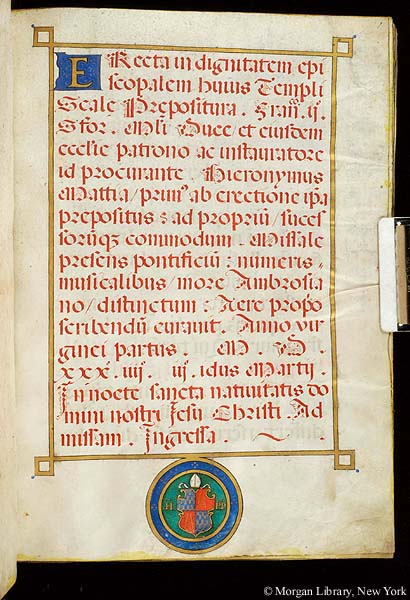 ERecta in dignitatem epi
scopalem huius Templi
Scale Prepositura. Franc. ij.
Sfor. Mli Duce / et eiusdem
ecclie patrono ac instauratore
id procurante. Hieronymus
Mattia / primus ab erectione ipa
prepositus : ad propriū / succes
sorūqz commodum. Missale
presens pontificiū : numeris /
musicalibus / more Ambrosia
no / distinctum : Aere propo
scribendū curauit. Anno vir
ginei partus. M. D.
xxx. iiij. iij. idus Martij.
In nocte sancta natiuitatis do
mini nostri Jesu Christi. Ad
missam Ingressa.
© Morgan Library, New York